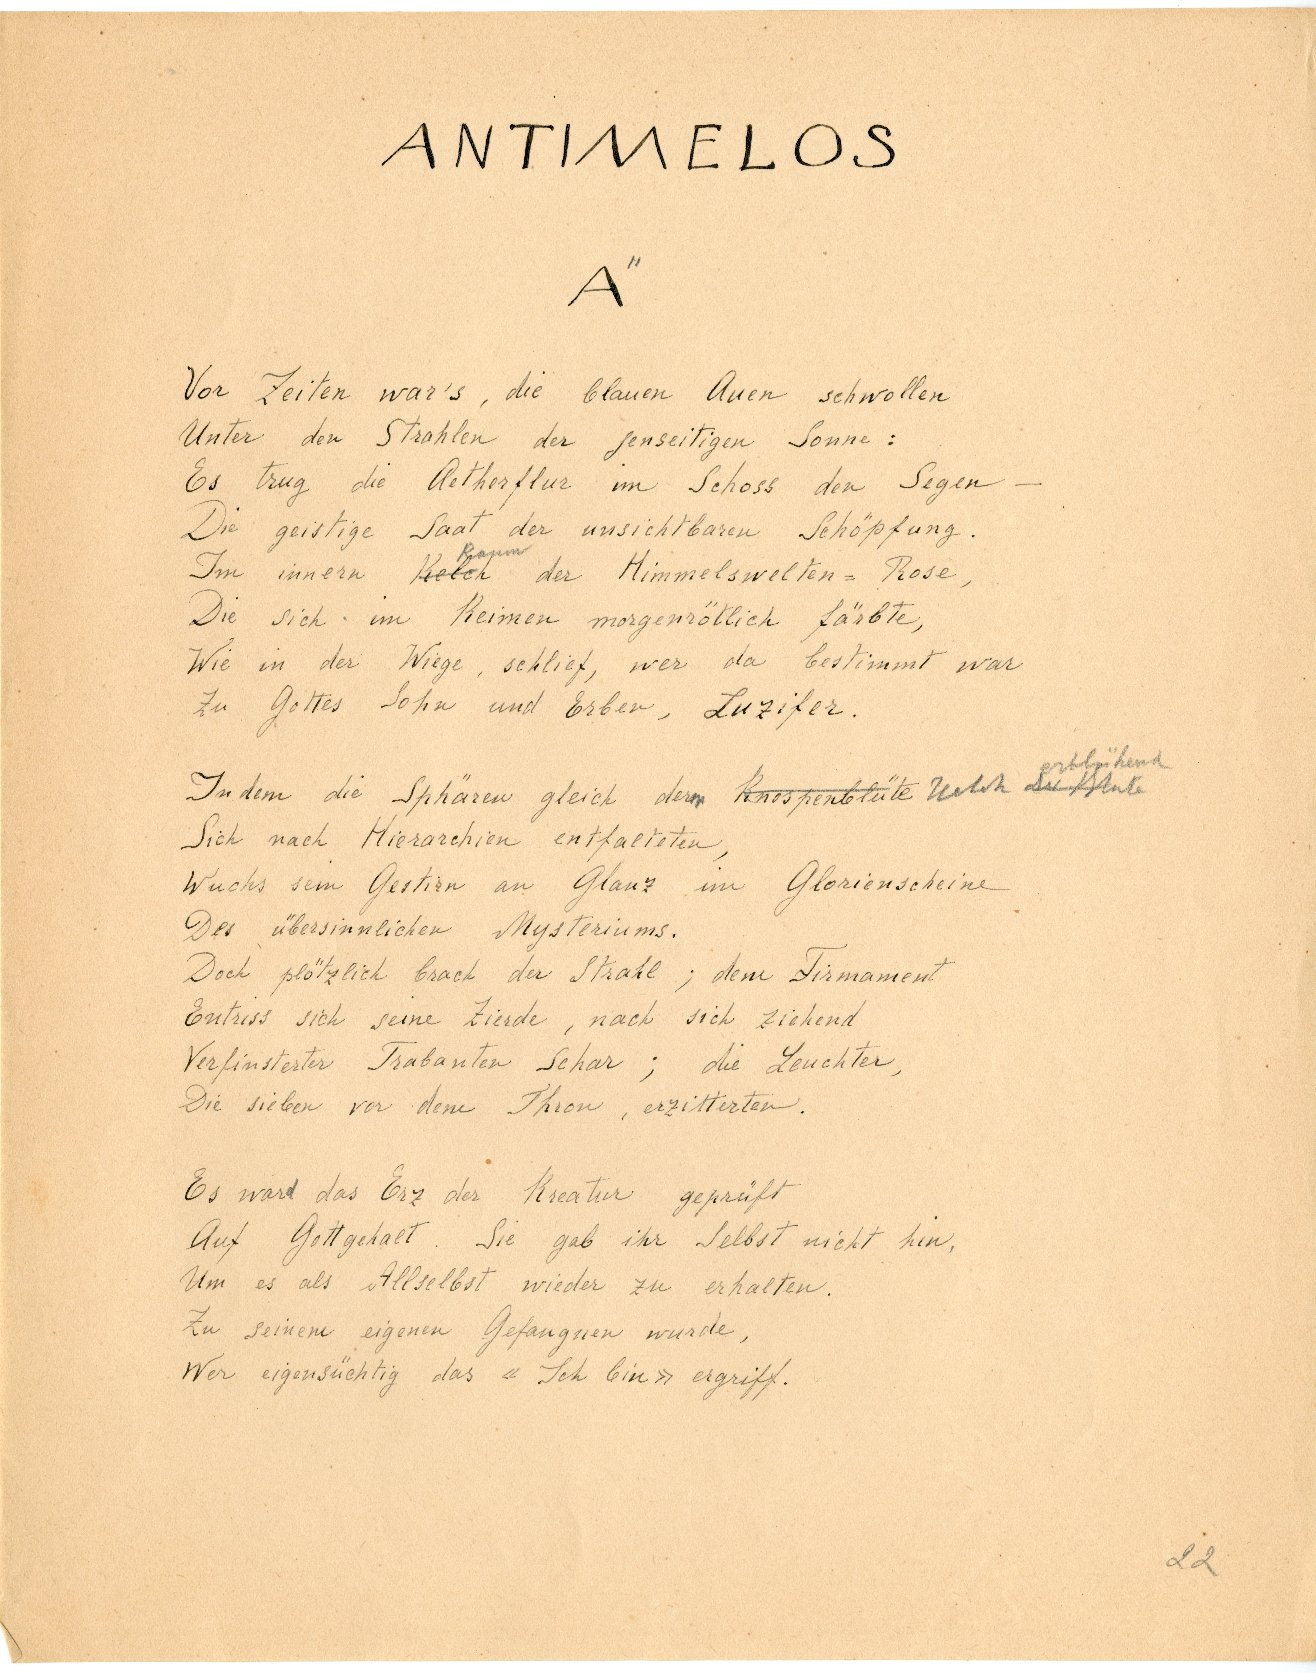 ANTIMELOS
A"
Vor Zeiten war's, die blauen Auen schwollen
Unter den Strahlen der jenseitigen Sonne:
Es trug die Aetherflur im Schoss den Segen —
Die geistige Saat der unsichtbaren Schöpfung.
Raum
Im innern Kelch der Himmelswelten = Rose,
Die sich im Keimen morgenrötlich färbte,
Wie in der Wiege, schlief, wer da bestimmt war
Zu Gottes Sohn und Erben, Luzifer.
erblühend
Indem die Sphären gleich dem Knospenblüte Kelch
Sich nach Hierarchien entfalteten,
Wuchs sein Gestirn an Glanz im Glorienscheine
Des übersinnlichen Mysteriums.
Doch plötzlich brach der Strahl; dem Firmament
Entriss sich seine Zierde, nach sich ziehend
Verfinsterter Trabanten Schar; die Leuchter,
Die sieben vor dem Thron, erzitterten.
Es ward das Erz der Kreatur geprüft
Auf Gottgehalt. Sie gab ihr Selbst nicht hin,
Um es als Allselbst wieder zu erhalten.
Zu seinem eigenen Gefangnen wurde,
Wer eigensüchtig das « Ich bin » ergriff.
22